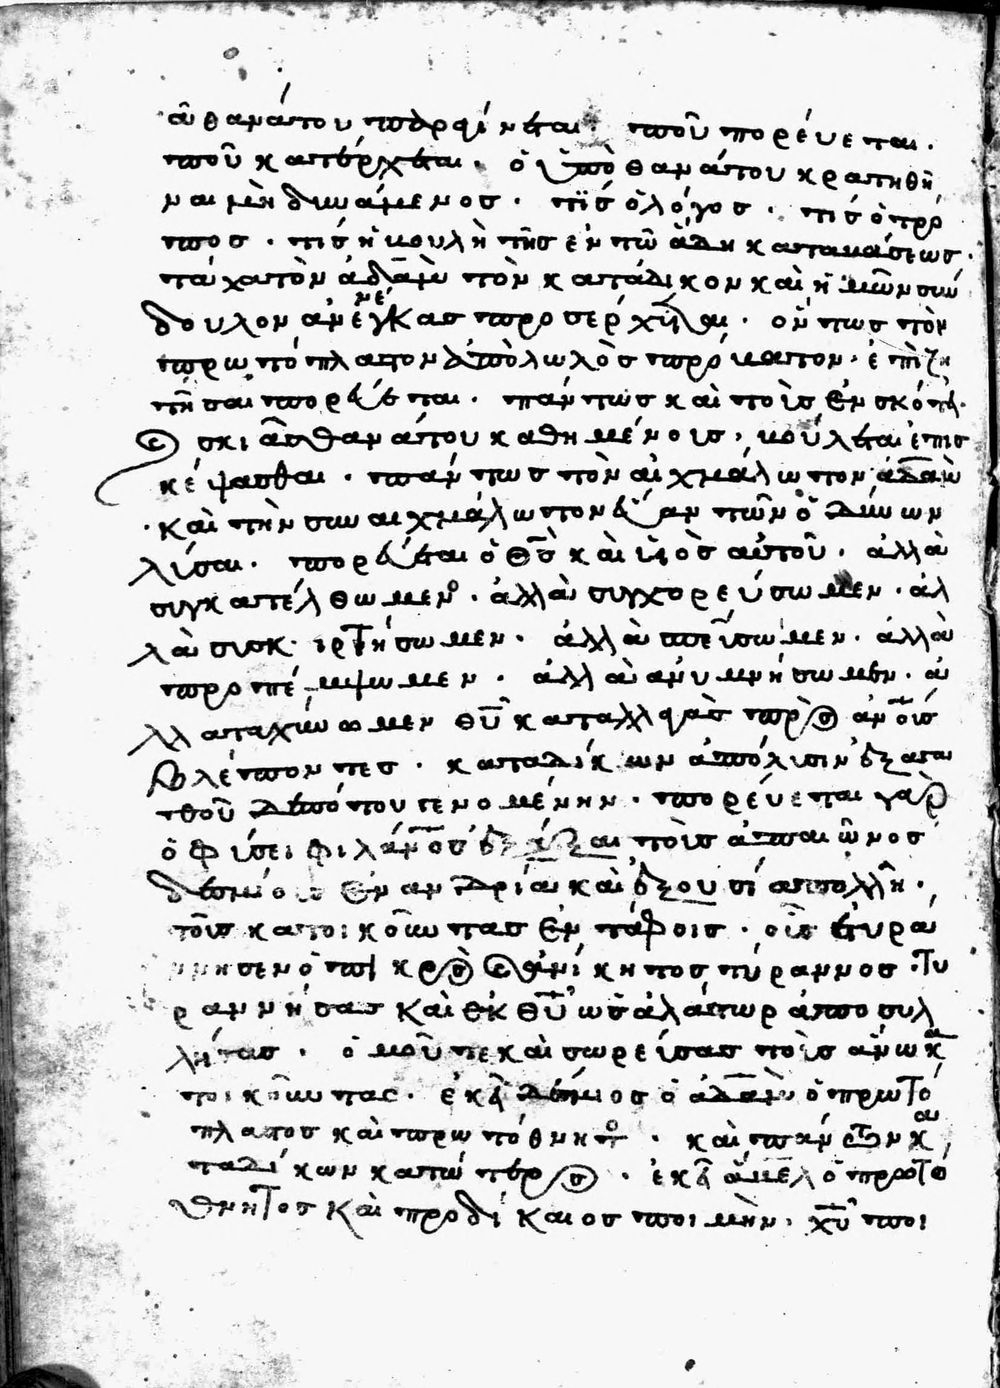 ἀθανάτου παραγίνεται· ποῦ πορεύεται·
ποῦ κατέρχεται· ὁ ὑπὸ θανάτου κρατηθῆ
ναι μὴ δυνάμενος· τίς ὁ λόγος· τίς ὁ τρό
πος· τίς ἡ βουλὴ τῆς ἐν τῶ ἅδη καταβάσεως·
τάχα τὸν ἀδὰμ τὸν κατάδικον καὶ ἡμῶν σύν
δουλον ἀνενέγκας προσέρχεται· ὄντως τὸν
πρωτόπλαστον ἀπολωλὸς πρόβατον· ἐπιζη
τῆσαι πορεύεται· πάντως καὶ τοῖς ἐν σκότει
σκιᾶς θανάτου καθημένοις, βούλεται ἐπισ
κέψασθαι· πάντως τὸν αἰχμάλωτον ἀδὰμ
καὶ τὴν συναιχμάλωτον εὔαν τῶν ὀδύνων
λύσαι· πορεύεται ὁ θς καὶ υἱὸς αὐτοῦ· ἀλλὰ
συγκατέλθωμεν· ἀλλὰ συγχορεύσωμεν· ἀλ
λὰ συσκιρτήσωμεν· ἀλλὰ σπεύσωμεν· ἀλλὰ
προπέμψωμεν· ἀλλὰ ἀνυμνήσωμεν· ἀ
λλα ταχύνωμεν θυ καταλλαγὰς πρὸς ανους
βλέποντες· καταδίκων ἀπόλυσιν ὑπ ἀγα
θοῦ δεσπότου γενομένην· πορεύεται γὰρ
ὁ φύσει φιλανος τοῖς ἀπαιῶνος
δεσμίους ἐν ανδρία καὶ ἐξουσία πολλῆ·
τοῖς κατοικοῦντας ἐν τάφοις· οὓς ἐτυρά
ννησεν ὁ πικρὸς ἀνίκητος τύραννος· τυ
ραννήσας καὶ ἐκ θυ ὡς ἀλάστωρ ἀποσυλ
λήσας· ὁμοῦ τε καὶ σωρεύσας τοῖς ἄνω κα
τοικοῦντας· ἐκεῖ δέσμιος ὁ ἀδὰμ ὁ πρωτό
πλαστος καὶ πρωτόθνητος· καὶ πάντων κα
ταδίκων κατώτερος· ἐκεῖ ἄβελ ὁ πρωτό
θνητος καὶ προδίκαιος ποιμὴν· χυ ποι